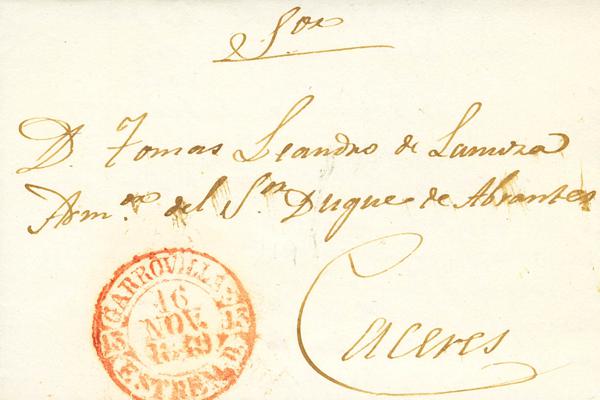 Sor
D. Tomas Leandro de
Adm.or del S.or Duque de Abrantes
Caceres
GARROVILLAS
16
NOV.
1849
ESTREM